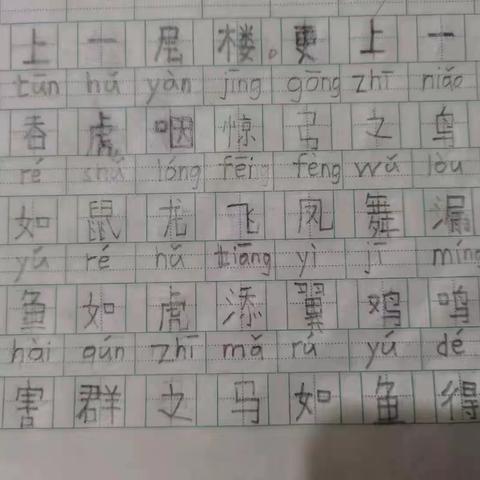 上一层楼。更上一
tūn hǔ yàn jīng gōng zhī niǎo
吞虎咽惊弓之鸟
ré shǔ lóng fēi fèng wǔ lòu
如鼠龙飞凤舞漏
yú ré hǔ tiāng yì jī míng
鱼如虎添翼鸡鸣
hài qún zhī mǎ rú yú dé
害群之马如鱼得